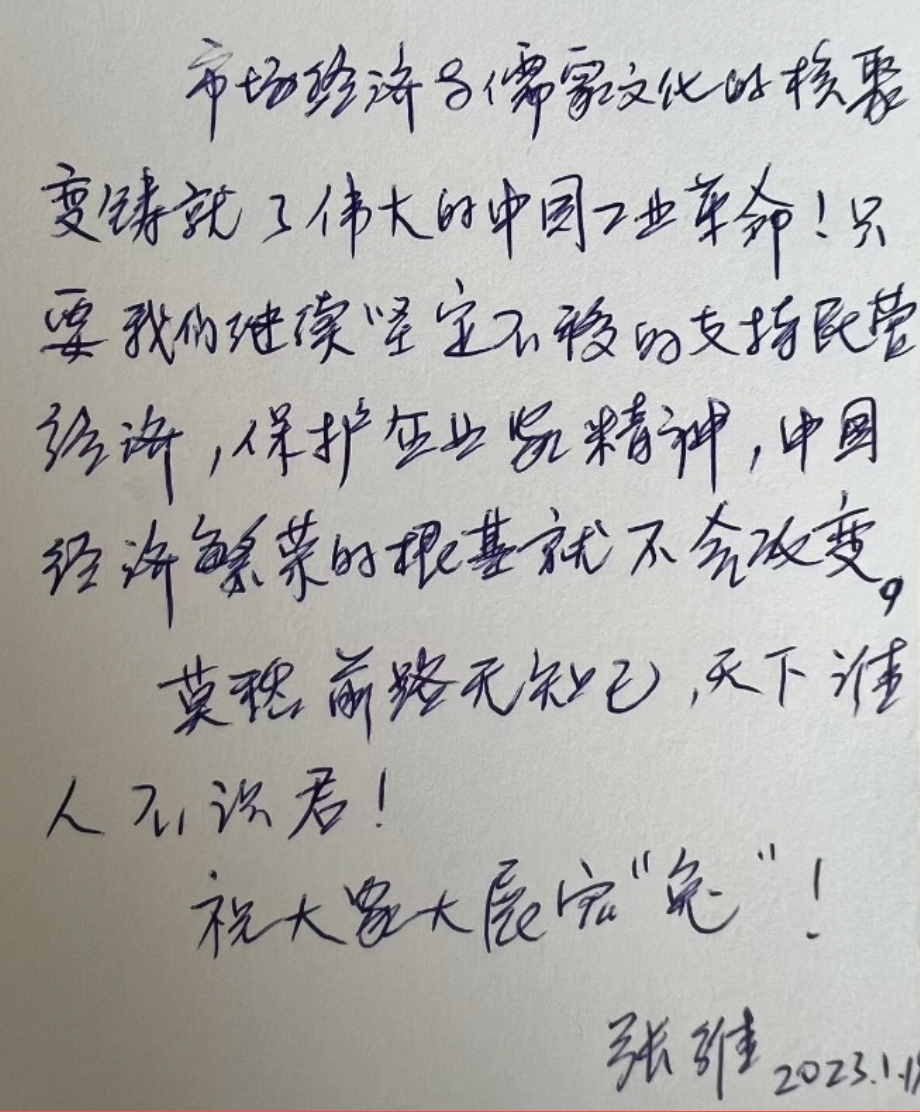 市场经济与儒家文化的核聚
变铸就了伟大的中国工业革命！只
要我们继续坚定不移的支持民营
经济，保护企业家精神，中国
经济繁荣的根基就不会改变。
莫愁前路无知己，天下谁
人不识君！
祝大家大展宏“兔”！
张维 2023.1.